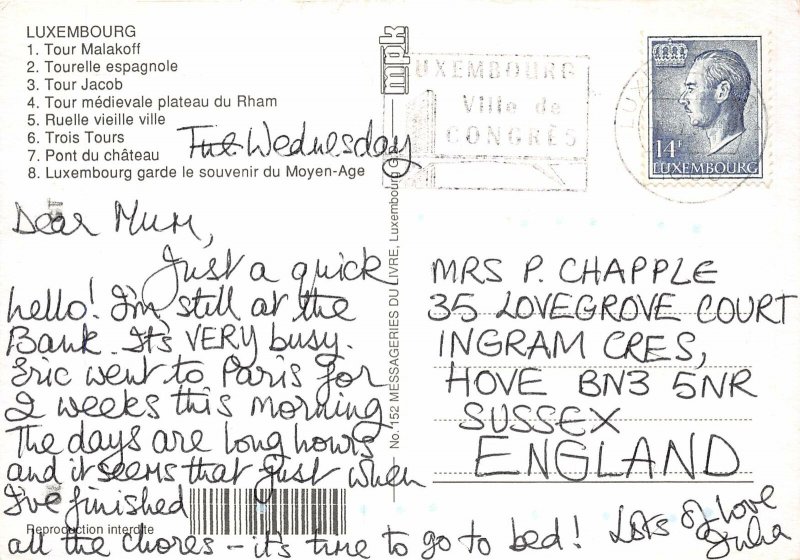 LUXEMBOURG
1. Tour Malakoff
2. Tourelle espagnole
3. Tour Jacob
4. Tour médievale plateau du Rham
5. Ruelle vieille ville
6. Trois Tours
7. Pont du château
8. Luxembourg garde le souvenir du Moyen-Age
Tue. Wednesday
Dear Mum,
Just a quick
hello! I'm still at the
Bank. It's VERY busy.
Eric went to Paris for
2 weeks this morning
The days are long hours
and it seems that just when
I've finished
all the chores - it's time to go to bed! Lots of love
Julia
Reproduction interdite
mpk
No. 152 MESSAGERIES DU LIVRE, Luxembourg G
LUXEMBOURG
Ville de
CONGRÈS
LUX
14F
LUXEMBOURG
MRS P. CHAPPLE
35 LOVEGROVE COURT
INGRAM CRES,
HOVE BN3 5NR
SUSSEX
ENGLAND